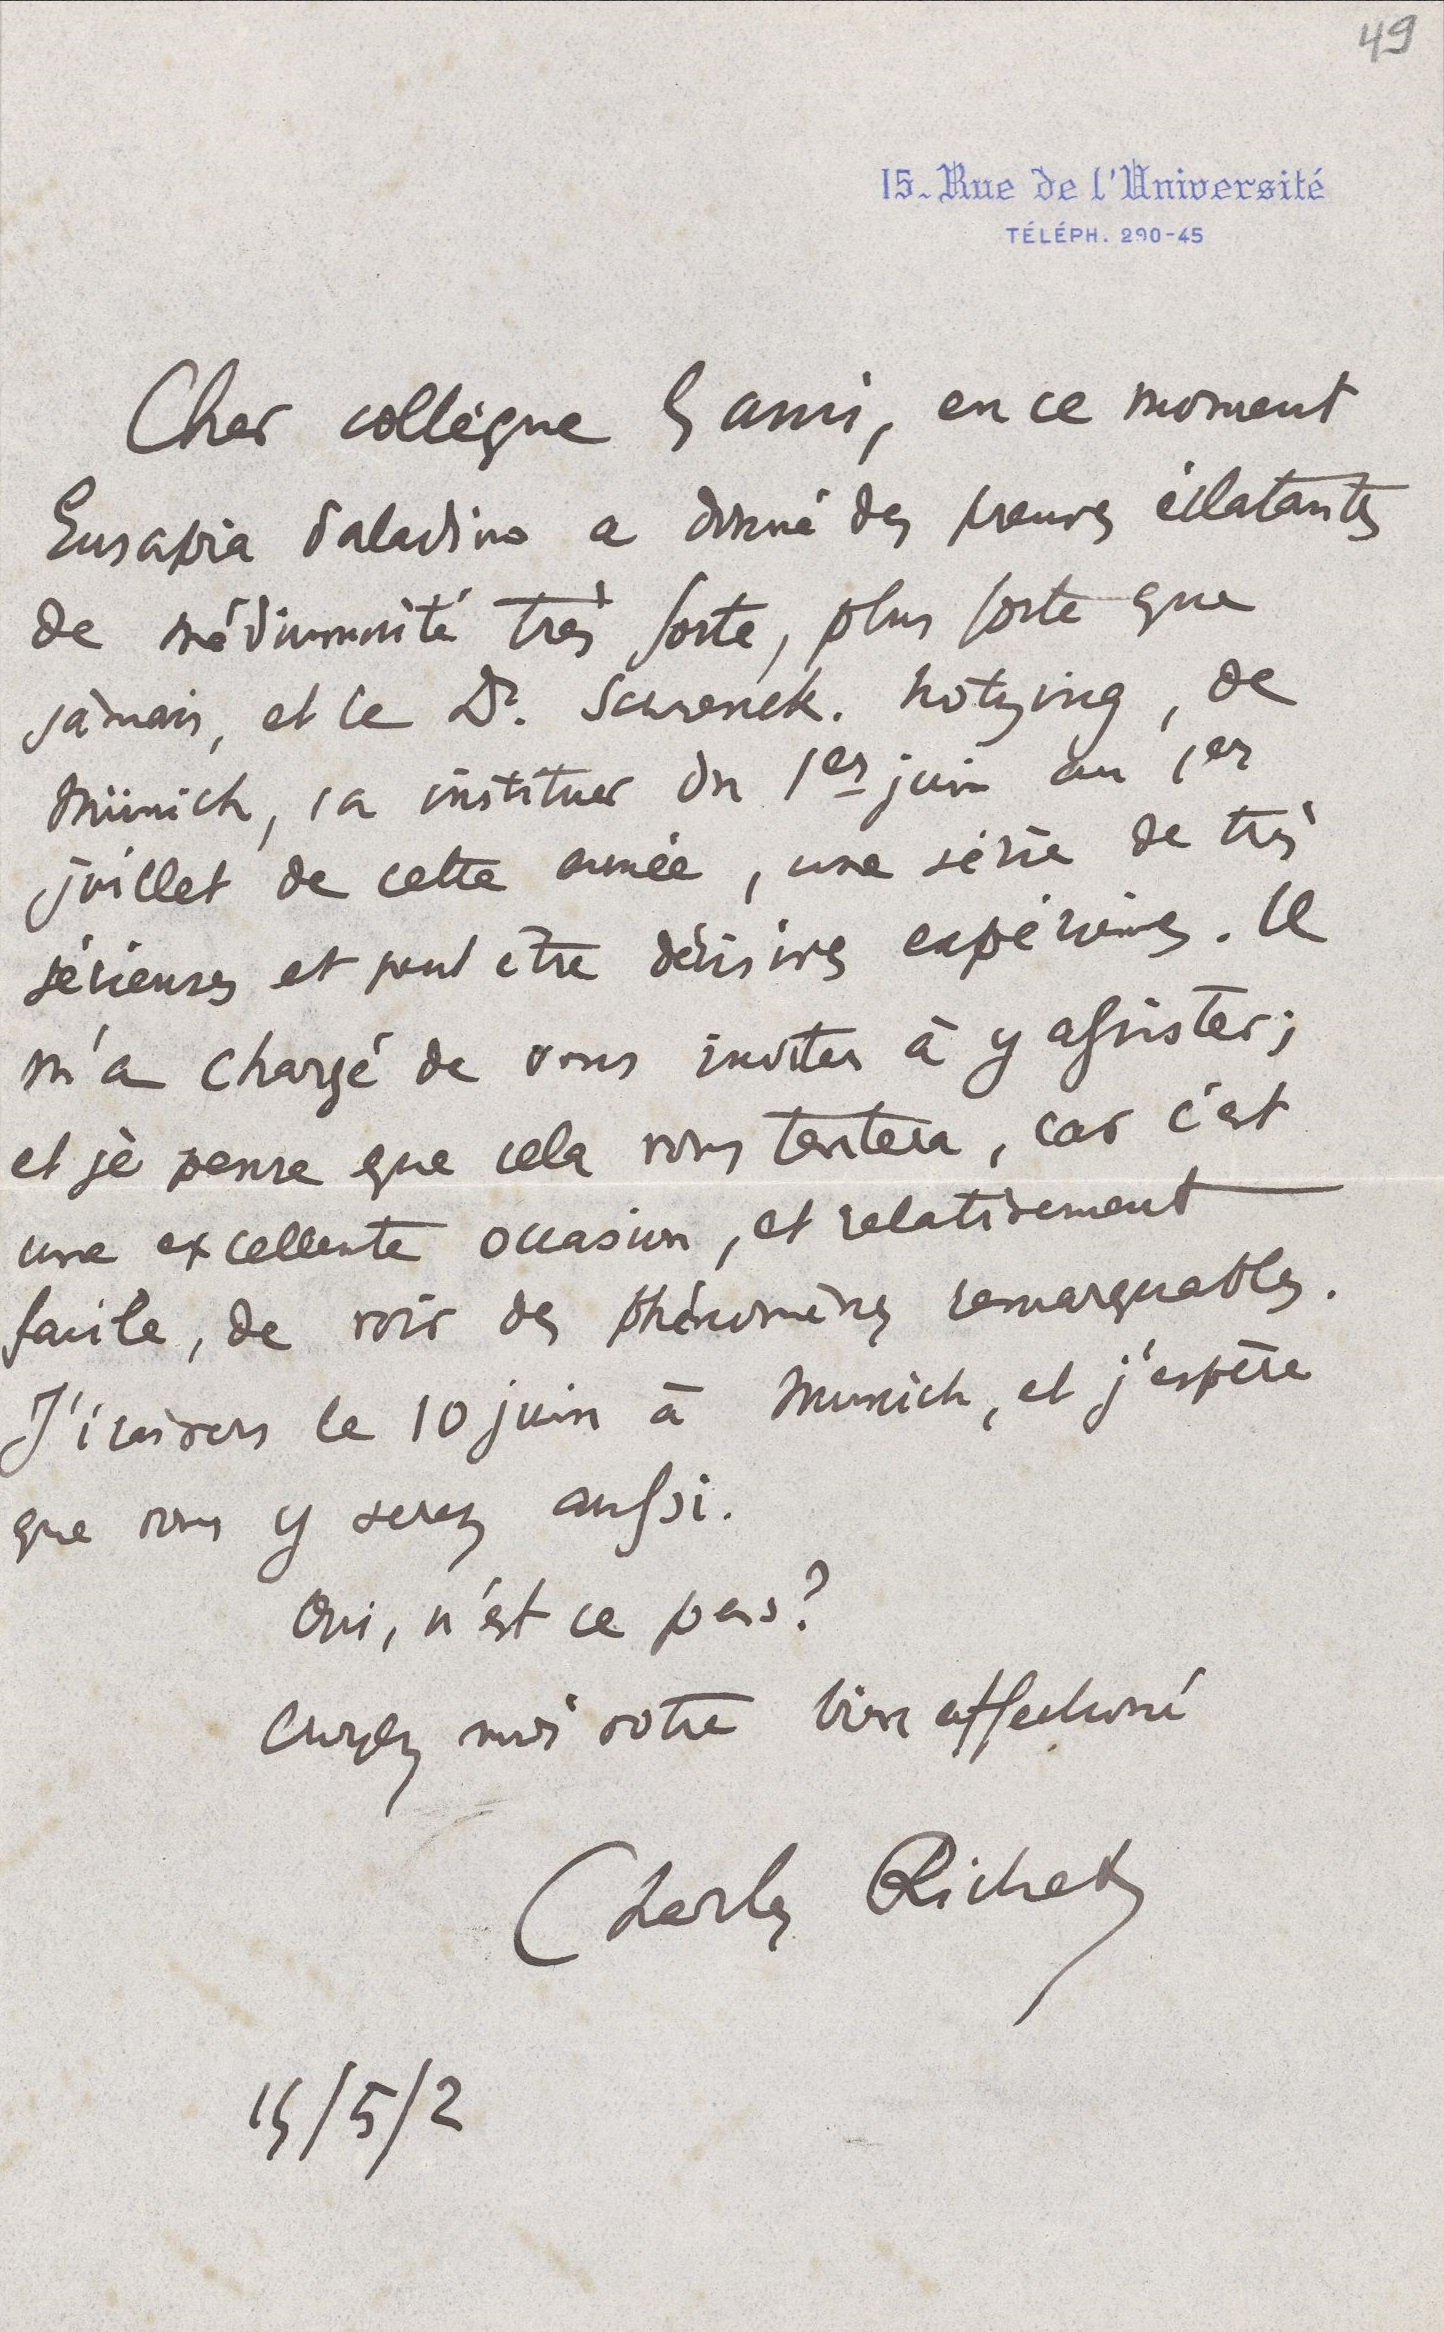 49
15. Rue de l'Université
TÉLÉPH. 290-45
Cher collègue & ami, en ce moment
Eusapia Paladino a donné des preuves éclatantes
de médiumnité très forte, plus forte que
jamais, et le Dr. Schrenck. Notzing, de
Münich, va instituer du 1er juin au 1er
juillet de cette année, une série de très
sérieuses et peut être décisives expériences. Il
m'a chargé de vous inviter à y assister;
et je pense que cela vous tentera, car c'est
une excellente occasion, et relativement
facile, de voir des phénomènes remarquables.
J'irai vers le 10 juin à Munich, et j'espère
que vous y serez aussi.
Oui, n'est ce pas?
Croyez moi votre bien affectionné
Charles Richet
15/5/2